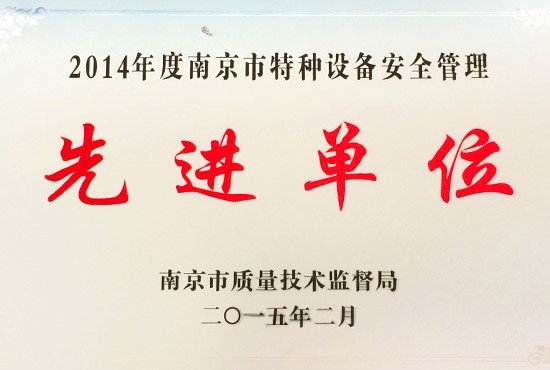 2014年度南京市特种设备安全管理
先进单位
南京市质量技术监督局
二〇一五年二月